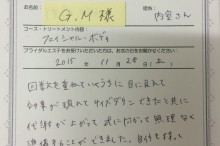 お名前
G.M 様
担当
内宮さん
コース・トリートメント内容
フェイシャル・ボディ
ブライダルエステをお受けいただいた方は、お式の日をお聞かせください
2015 11 28 土
回数を重ねていくうちに目に見えて
効果が現れてサイズダウンできたと共に
代謝が上がって式に向けて無理なく
準備することができました。自分も持って